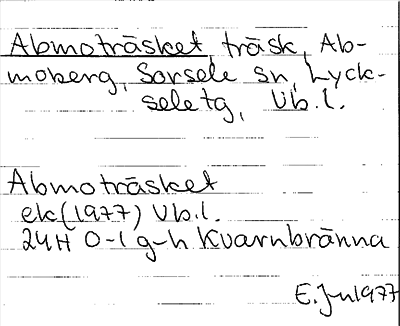 Abmoträsket, träsk, Ab-
moberg, Sorsele sn, Lyck-
sele tg, Vb.l.
Abmoträsket
ek (1977) Vb.l.
24H 0-1 g-h Kvarnbränna
E.Jn 1977